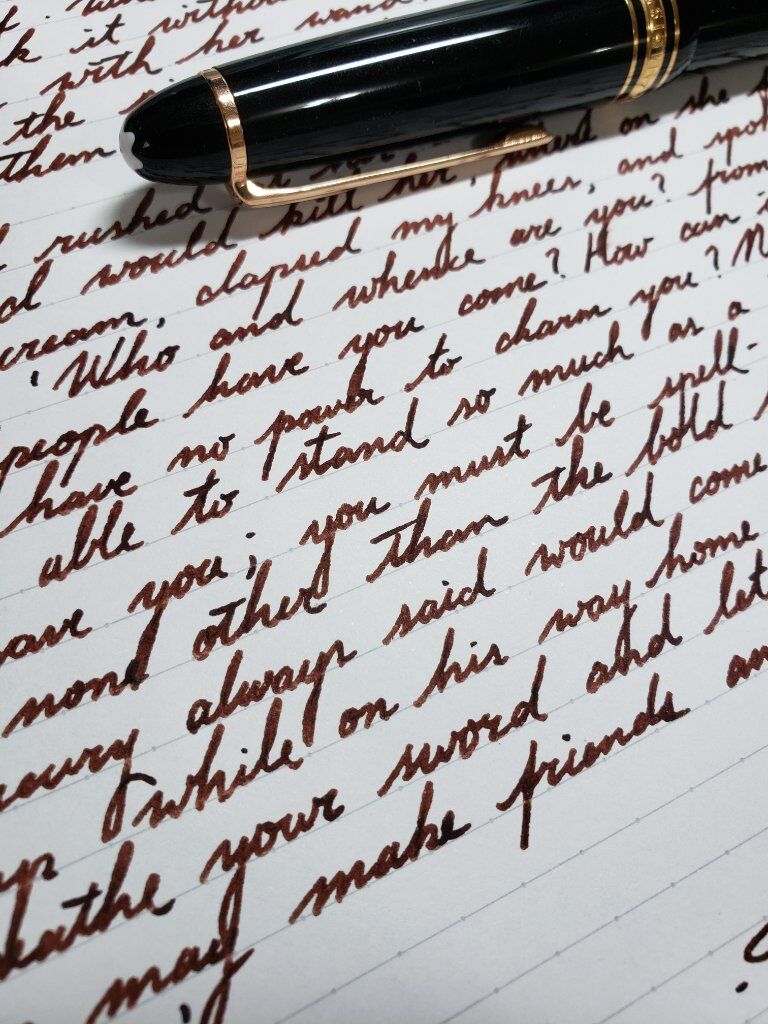 k it without
with her wand
the
them
rushed
would kill her, on she
cream, clapsed my knees, and spok
'Who and whence are you? from
people have you come? How can i
have no power to charm you? N
able to stand so much as a
have you; you must be spell-
none other than the bold
always said would come
while on his way home
your sword and let
may make friends an